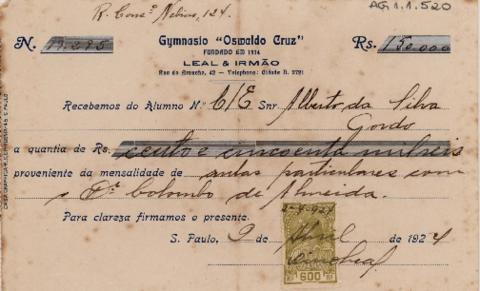 R. Cons.º Nebias, 124.
AG 1.1.520
N. 19.295 Gymnasio "Oswaldo Cruz" Rs. 150.000
FUNDADO EM 1914
LEAL & IRMÃO
Rua do Arouche, 42 — Telephone: Cidade 2791
Recebemos do Alumno N.º C/E Snr Alberto da Silva
Gordo
a quantia de Rs. cento e cincoenta milreis
proveniente da mensalidade de aulas particulares com
o Dr Colombo de Almeida.
Para clareza firmamos o presente.
2-4-924
S. Paulo, 2 de Abril de 1924
600